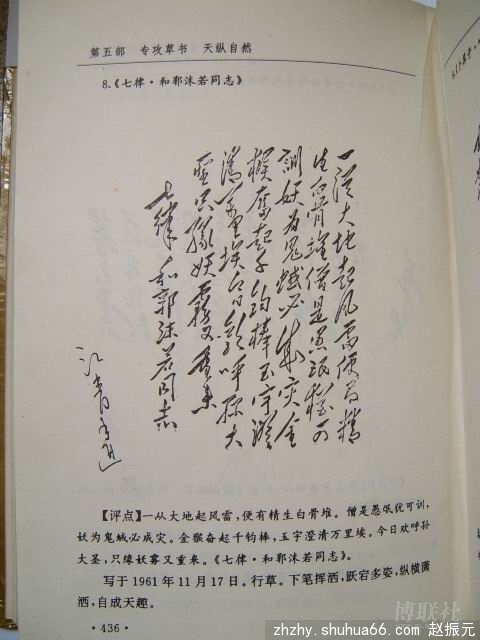 第五部 专攻草书 天纵自然
8.《七律·和郭沫若同志》
一從大地起風雷便有精
生白骨堆僧是愚氓猶可
訓妖为鬼蜮必成灾金
猴奮起千鈞棒玉宇澄
清萬里埃今日歡呼孫大
聖只緣妖霧又重来
七律 和郭沫若同志
江青
【评点】一从大地起风雷,便有精生白骨堆。僧是愚氓犹可训,
妖为鬼蜮必成灾。金猴奋起千钧棒,玉宇澄清万里埃。今日欢呼孙
大圣,只缘妖雾又重来。《七律·和郭沫若同志》。
写于1961年11月17日。行草。下笔挥洒,跃宕多姿,纵横潇
洒,自成天趣。
·436·
博联社
zhzhy.shuhua66.com 赵振元